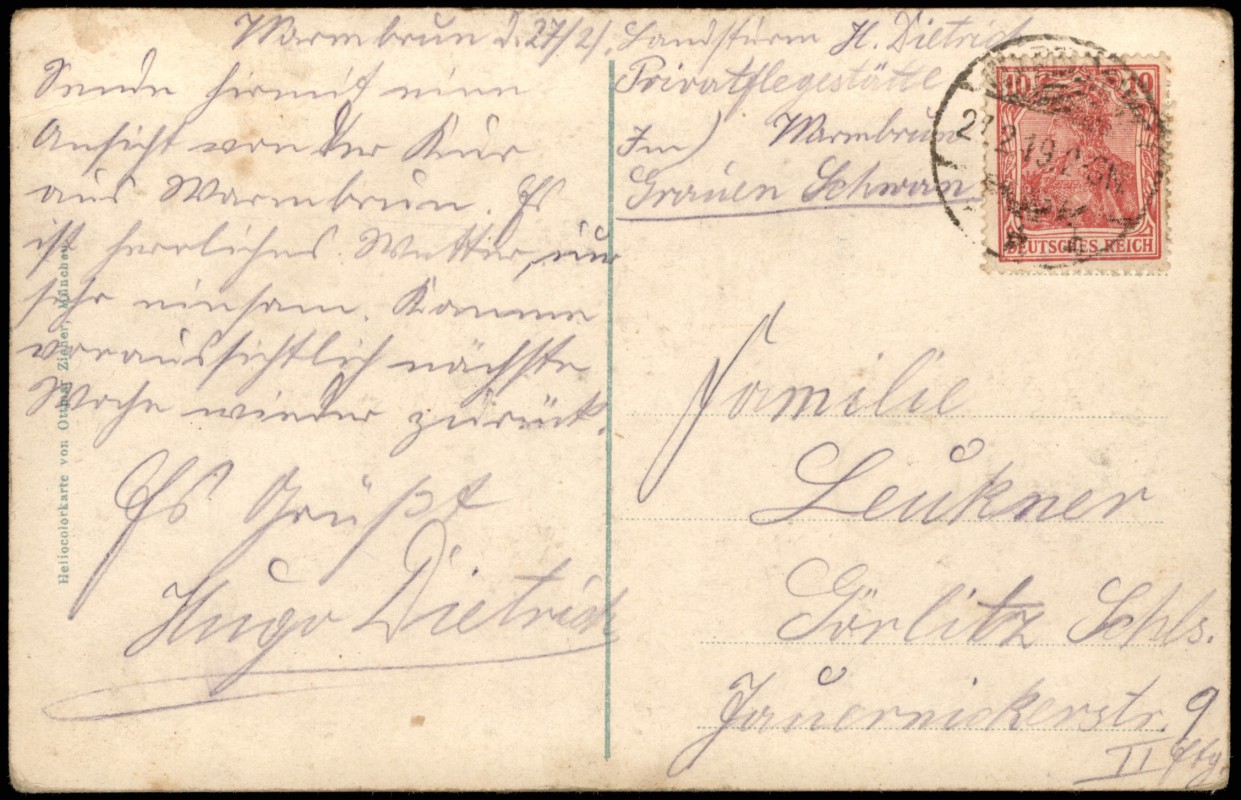 Warmbrun d. 27/2/.
Sende hiermit eine
Ansicht von der Kur
aus Warmbrun. Es
ist herrliches Wetter, nur
sehr einsam. Komme
voraussichtlich nächste
Woche wieder zurück.
Es Grüßt
Hugo Dietrich
Landsturm H. Dietrich
Privatpflegestätte
Im) Warmbrun
Grauen Schwan
10 10
DEUTSCHES REICH
Familie
Leukner
Görlitz Schls.
Jauernickerstr. 9
II Etg.
Heliocolorkarte von Ottmar Zieher, München